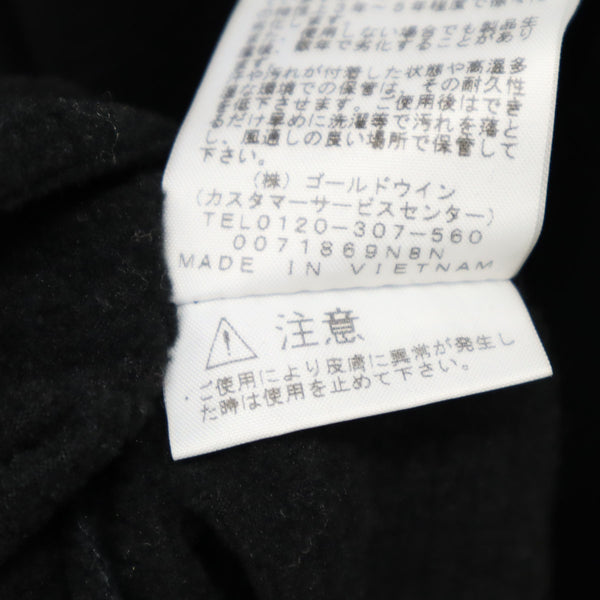 3年～5年程度で徐々に
使用しない場合でも製品生
数年で劣化することがあり
汚れが付着した状態や高温多
環境での保管は、その耐久性
を低下させます。ご使用後はでき
るだけ早めに洗濯等で汚れを落と
し、風通しの良い場所で保管して
下さい。
(株)ゴールドウイン
(カスタマーサービスセンター)
TEL0120-307-560
0071869N8N
MADE IN VIETNAM
注意
・ご使用により皮膚に異常が発生し
た時は使用を止めて下さい。